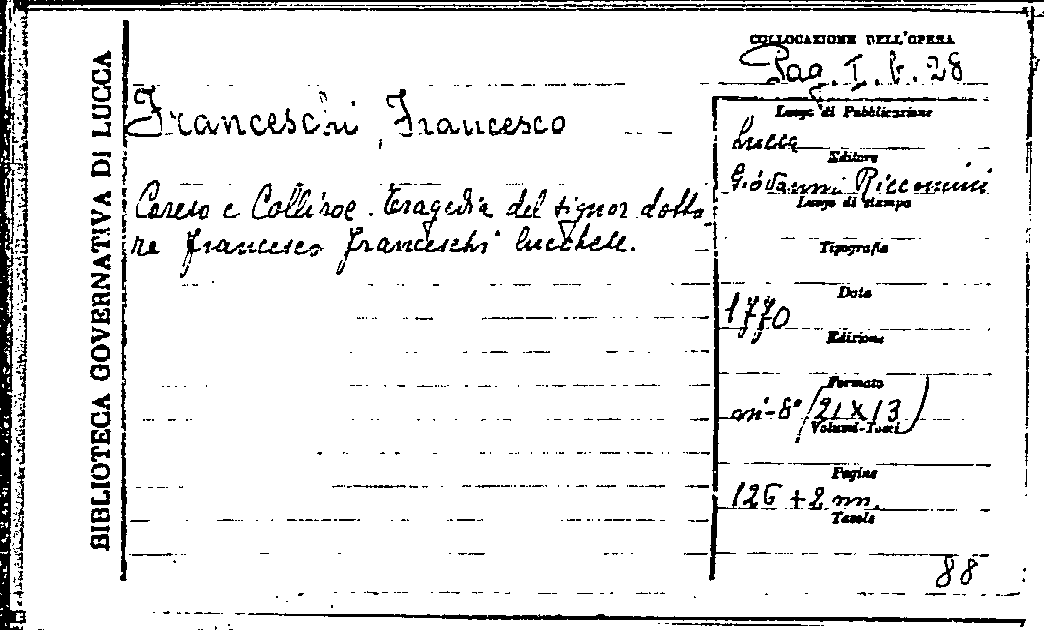 BIBLIOTECA GOVERNATIVA DI LUCCA
COLLOCAZIONE DELL'OPERA
Pag. I. b. 28
Franceschi, Francesco
Coreso e Calliroe. Tragedia del signor dotto
re Francesco Franceschi lucchese.
Luogo di Pubblicazione
Lucca
Editore
Giovanni Riccomini
Luogo di stampa
Tipografia
Data
1770
Edizione
Formato
in-8° (21 x 13)
Volumi-Tomi
Pagine
126 + 2 nn.
Tavole
88